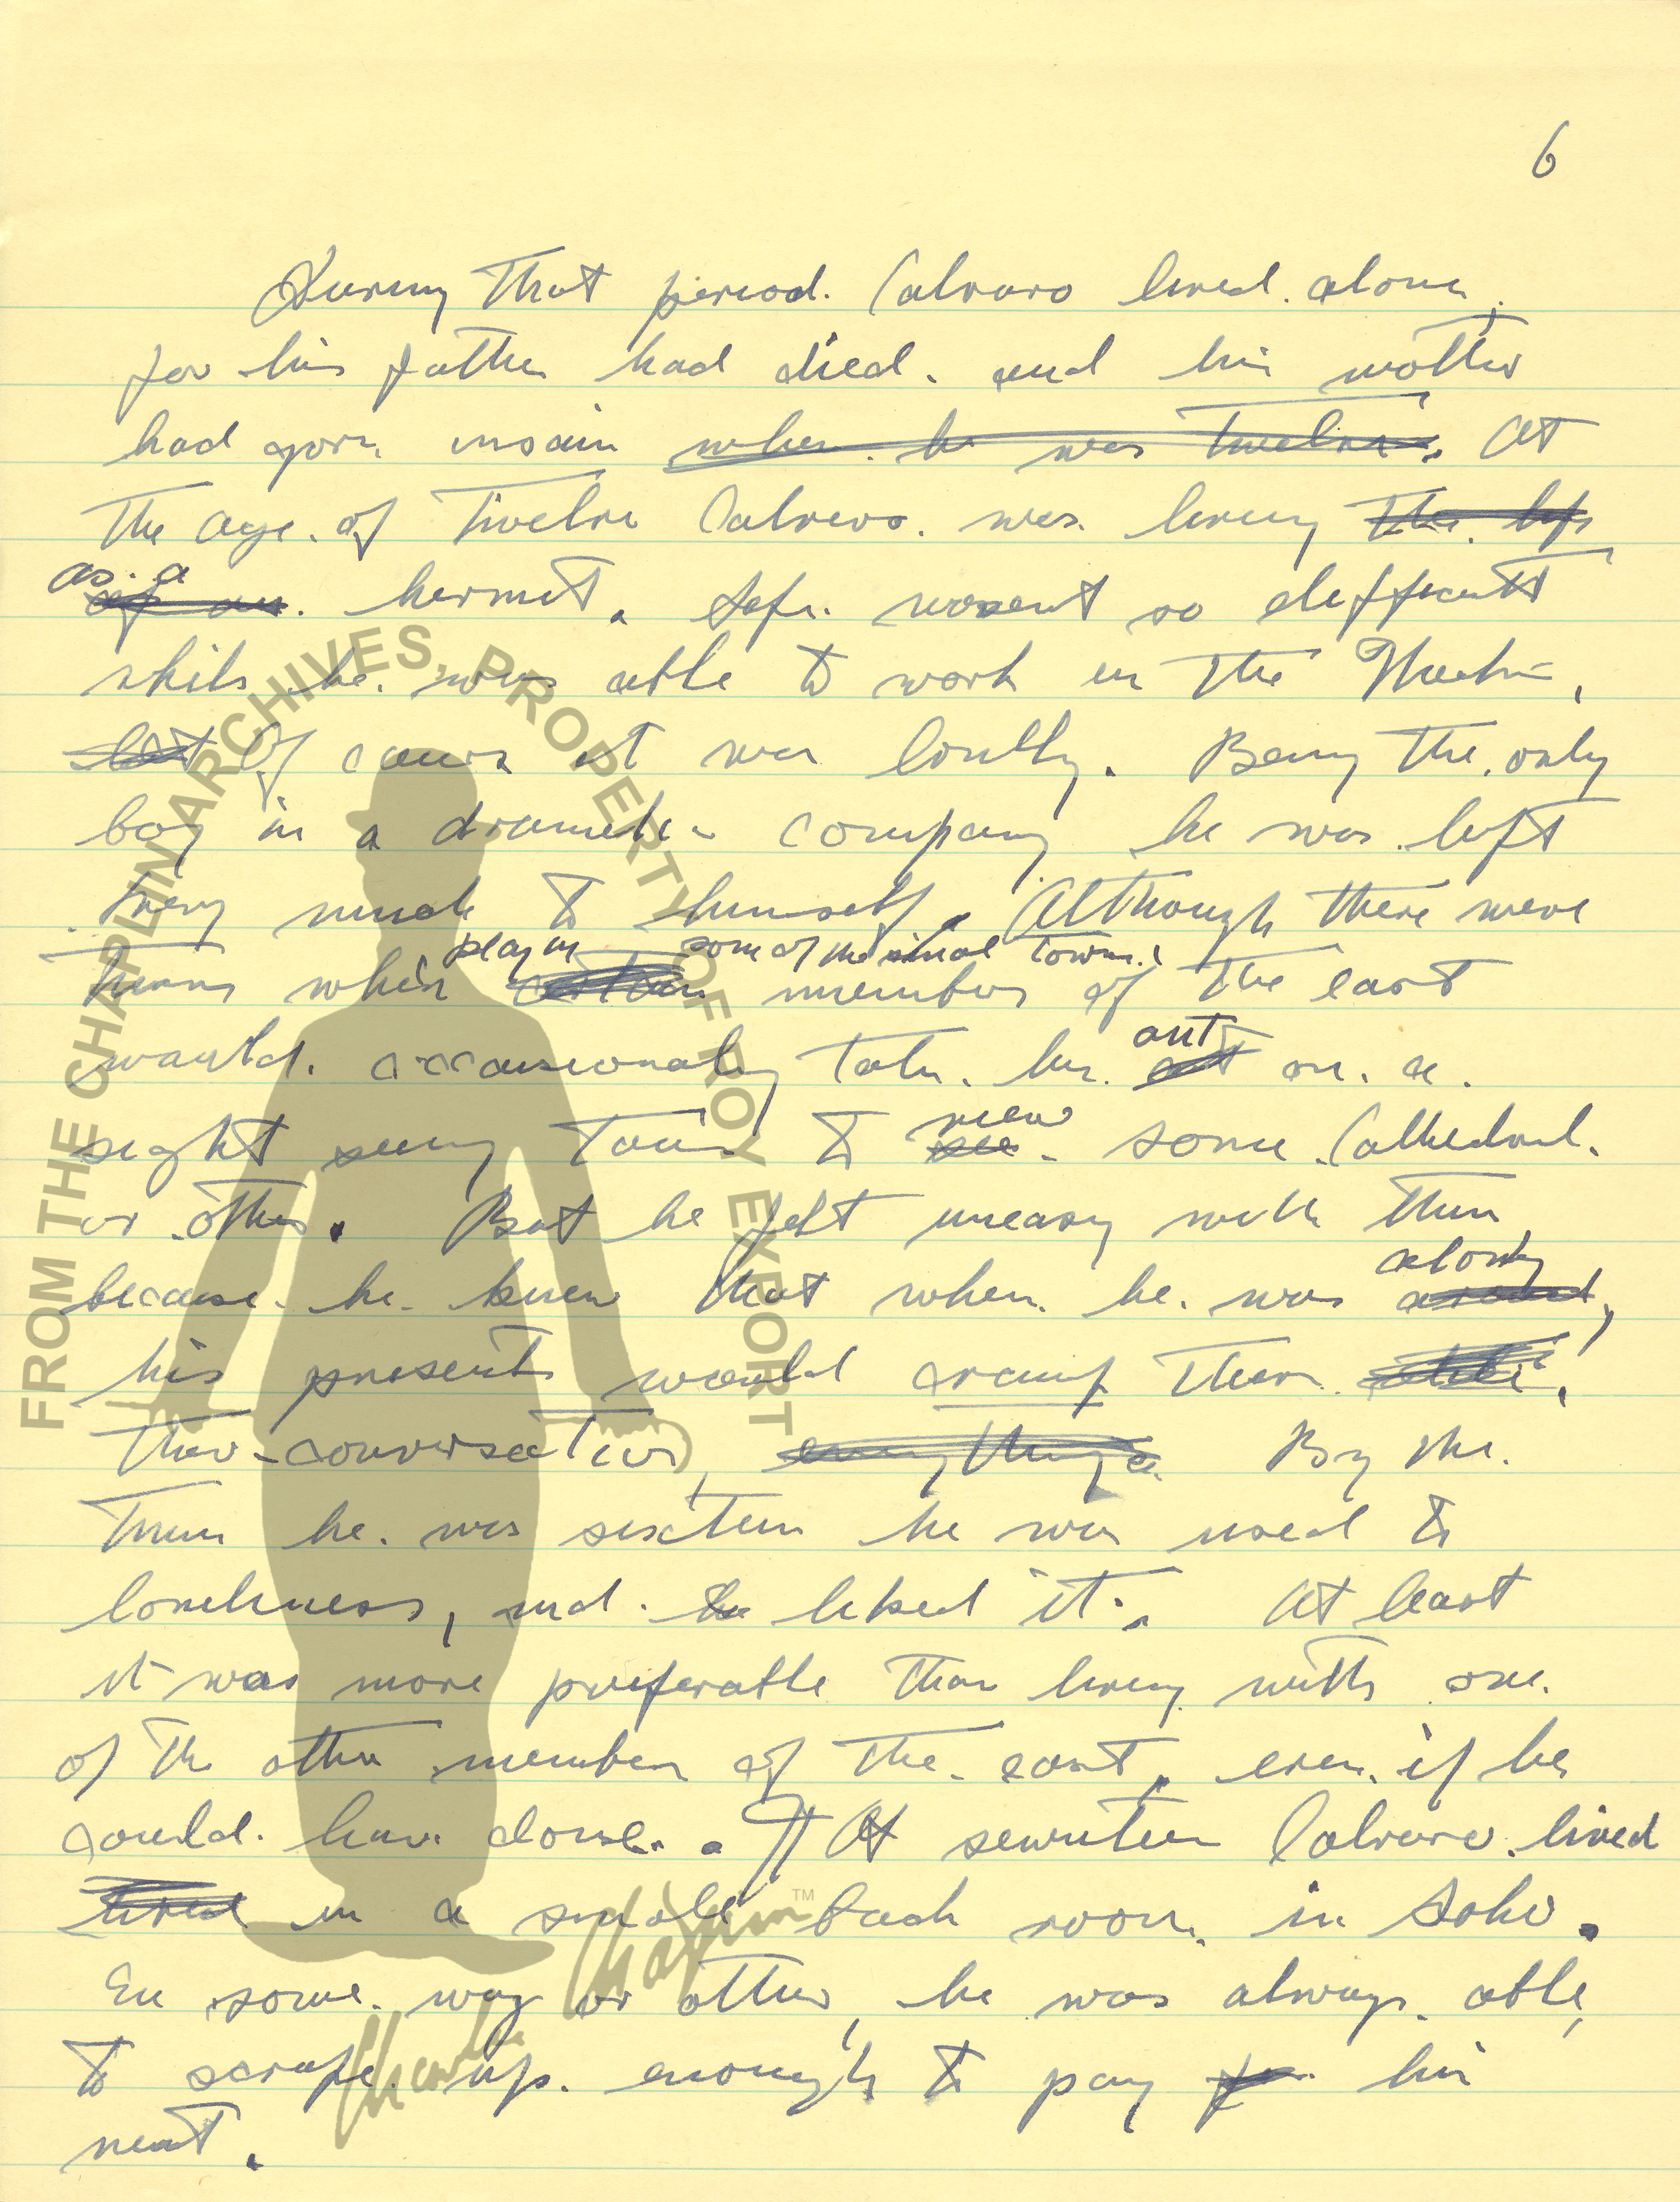 6
During that period. Calvero lived. alone,
for his father had died. and his mother
had gone insain when. he was twelve. At
the age. of twelve Calvero. was. living the. life
as. a
of an. hermit. Life. wasent so difficult
whils he. was able to work in the Theatre,
but Of cours it was lonlly. Being the. only
boy in a dramatic company he was. left
very much to himself. Although there were
play in some of the usual towns.
times when certain members of the cast
would. occasionaly take. him. out
out on. a.
sight seeing tour to view
see. some. Cathedral.
or. other. But he felt uneasy with them
because. he. knew that when. he. was along
around,
his presents would cramp them
their conversation, everything. By the.
time he. was sixteen he was used to
loneliness, and. he liked it. At least
it was more preferable than living with one.
of the other members of the. cast, even. if he
could. have. done. . ¶ At seventeen Calvero. lived
lived in a small back room. in Soho.
In some. way or other, he was always. able,
to scrape. up. enough to pay for. his
rent.
FROM THE CHAPLIN ARCHIVES, PROPERTY OF ROY EXPORT
Charlie Chaplin™